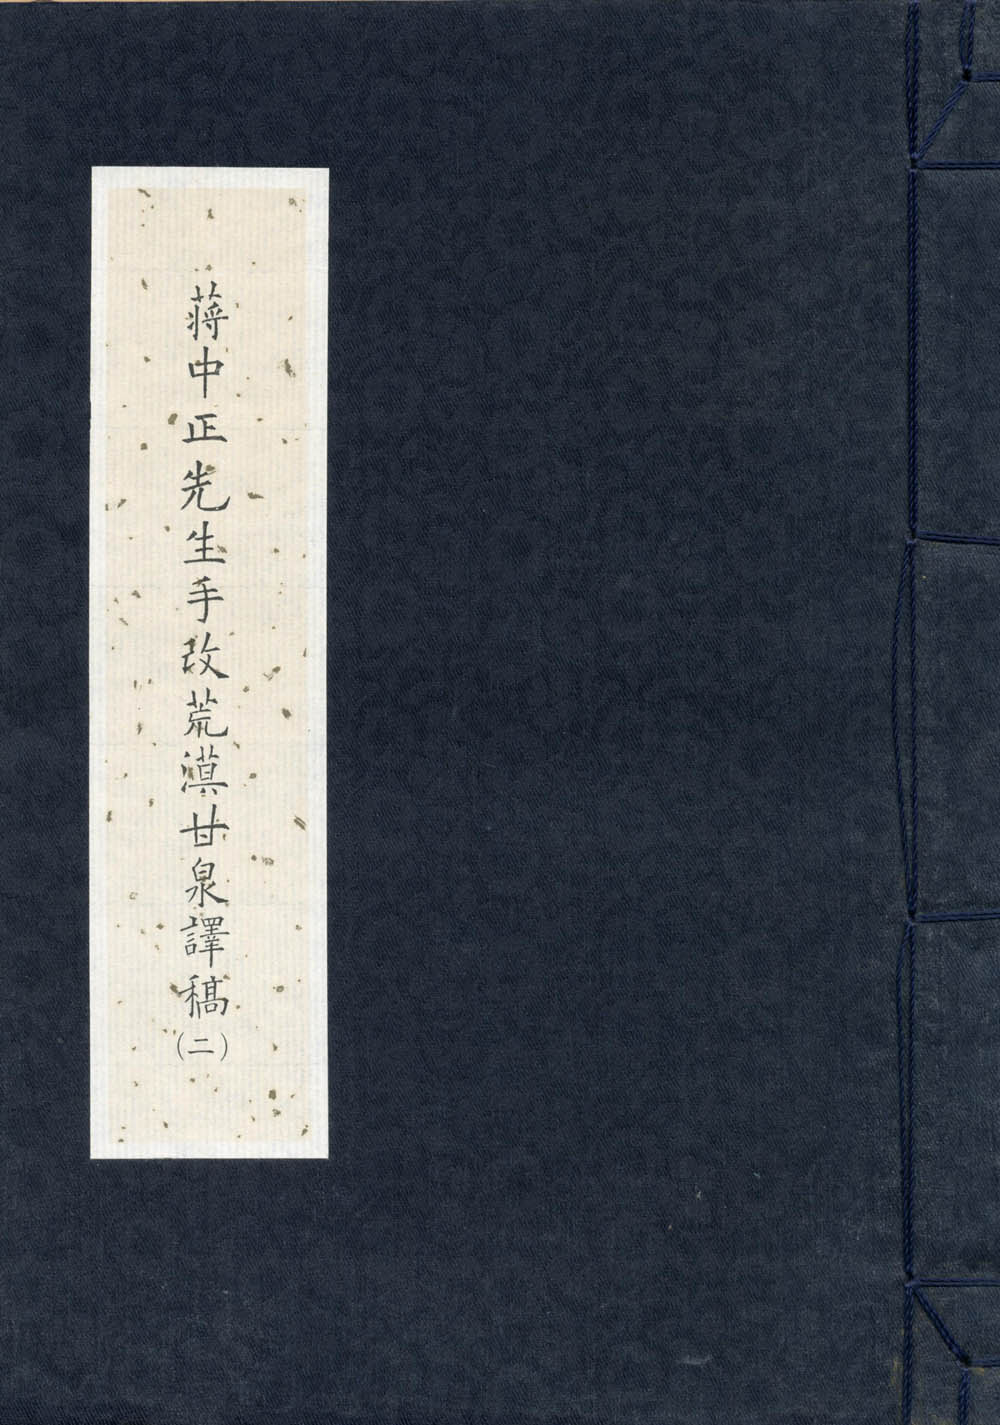 蔣中正先生手改荒漠甘泉譯稿(二)